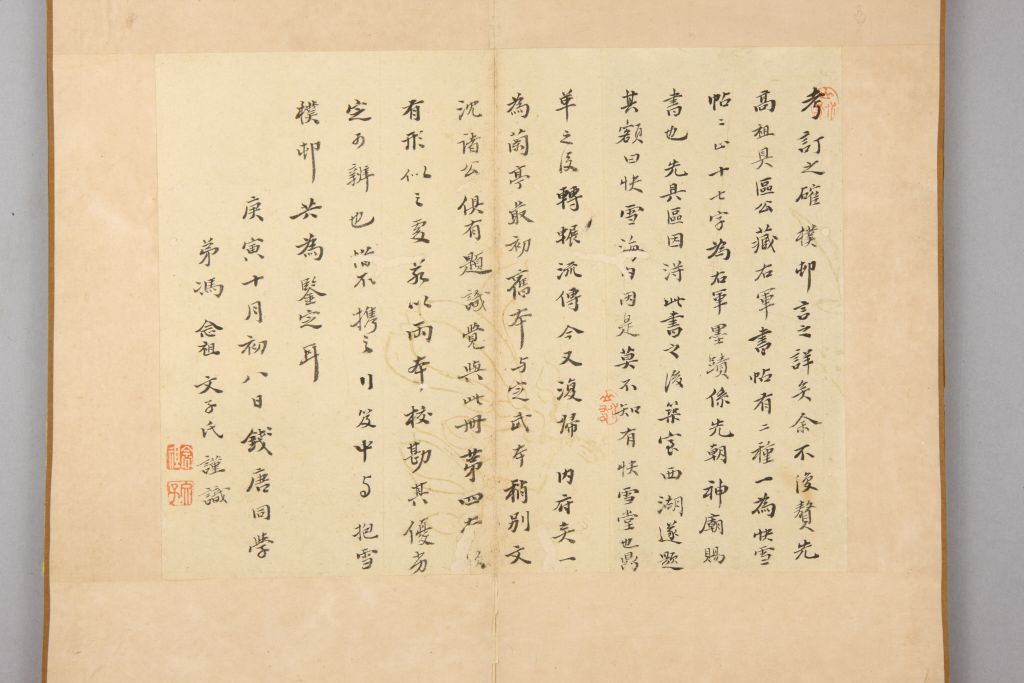 考訂之確樸邨言之詳矣余不復贅先
高祖具區公藏右軍書帖有二種一為快雪
帖二止十七字為右軍墨蹟係先朝神廟賜
書也先具區因得此書之後築室西湖遂題
其額曰快雪海內因是莫不知有快雪堂也鼎
革之後轉輾流傳今又復歸內府矣一
為蘭亭最初舊本与定武本稍別文
沈諸公俱有題識覺與此冊第四本
有形似之支若以兩本校勘其優劣
定可辨也惜不携之行笈中与抱雪
樸邨共為鑒定耳
庚寅十月初八日錢唐同學
弟馮念祖文子氏謹識
念祖
文子